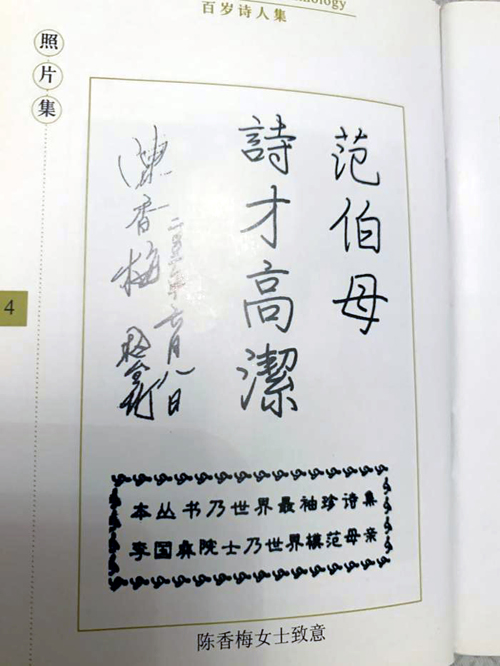 nology
百岁诗人集
照片集
4
范伯母
詩才高潔
陳香梅
六月八日
本丛书乃世界最袖珍诗集
李国彝院士乃世界模范母亲
陈香梅女士致意